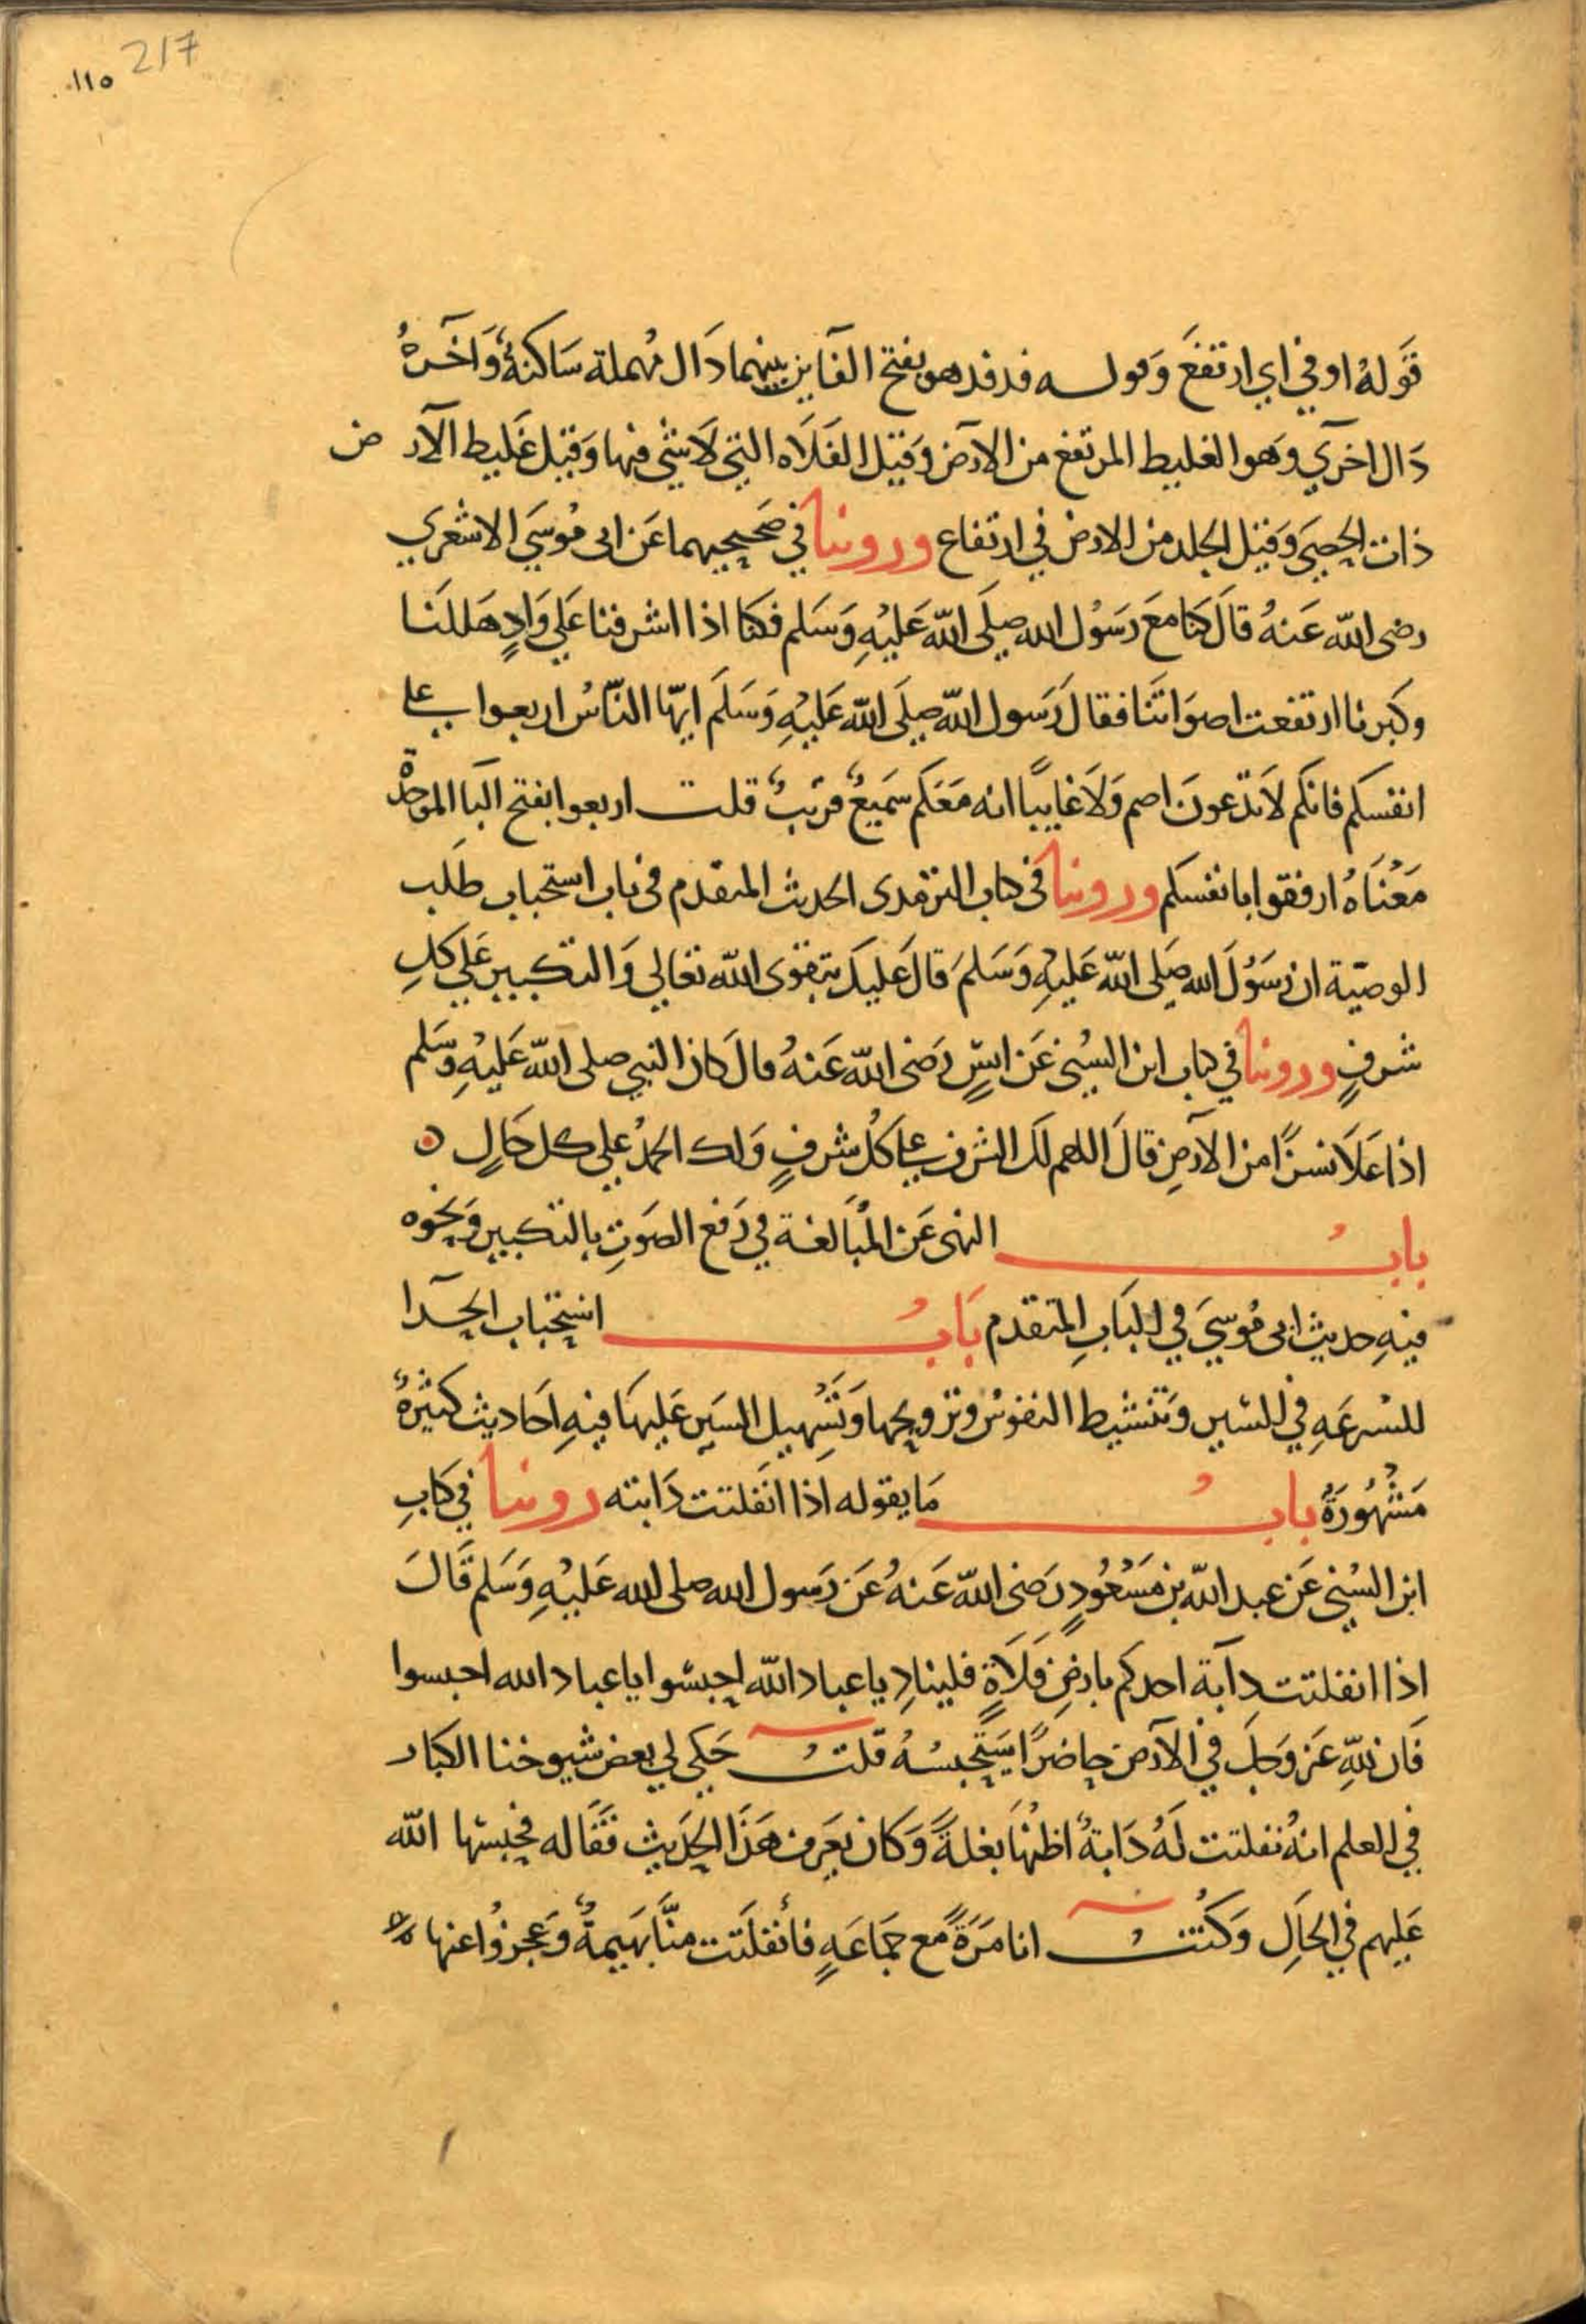 217
١١٥
قَولهُ اوفي اي ارتفعَ وَقوله فدفد هو بفتح الفَاين بينهما دَال مُهملة سَاكنةٌ وَآخرهُ
دَال اخري وهوا الغليط المرتفع من الارَض وَقيل الفَلَاه التي لَا شي فيها وَقيل غَليط الأر ض
ذات الحصَى وَقيل الجلد من الارض في ارتفاع وروينا في صَحيحيهما عَن ابى مُوسَي الاشعري
رضى الله عَنهُ قالَ كنا معَ رَسُول الله صلَى الله عَليْهِ وَسَلم فكنا اذا اشرفنا عَلي وَادٍ هَللنَا
وكبرنا ارتفعت اصوَاتنَا فقالَ رَسول الله صلَى الله عَليْهِ وَسَلمَ ايهّا النّاسُ اربعوا على
انفسكم فانكم لَا تدّعونَ اصم وَلَا غايبًا انه مَعَكم سَميعٌ قريبٌ قلت اربعوا بفتح البَا الموحدة
مَعْنَاهُ ارفقوا بانفسكم وروينا فى كتاب الترمدى الحديث المتقدم فى باب استحباب طَلب
الوصيّة ان رسَوُلَ الله صَلى الله عَليْهِ وَسَلمَ قالَ عَليكَ بتقوى الله تعَالي وَالتكبير عَلي كلِ
شرفٍ وروينا في كتاب ابن السُني عَن انسٍ رَضى الله عَنهُ قالَ كان النبي صلى الله عَليْهِ وسَلم
اذا عَلَا نسزًا من الارَضِ قالَ اللهم لكَ الشرف على كُل شرفٍ وَلك الحمدُ علي كل حَالٍ ه
بابُ النهى عَن المُبَالغة في رَفع الصَوتِ بالتكبير وَنحوه
فيهِ حديث ابى مُوسيَ في البَابِ المتقدم بَابُ استحباب الحدَا
للسُرعَهِ في السَير وَتنشيط النفوسُ وترويحها وَتَسْهيلِ السَير عَليهَا فيهِ اَحَاديث كثيرةٌ
مَشْهُورَةٌ بابُ مَا يقوله اذا انفَلتت دَابته روينا في كَابِ
ابن السُني عَن عبد الله بن مَسْعُودٍ رَضى الله عَنهُ عَن رَسول الله صلى الله عَليْهِ وَسَلم قَالَ
اِذا انفلتت دابَة احدكم بارضِ فَلَاةٍ فلينادِ يا عباد الله احبسُوا يا عباد الله احبسوا
فَان للهِ عَز وَجلَ في الارَض حاضرًا سَيَحبسُهُ قلتُ حَكي لي بعض شيوخنا الكبار
في العلم انهُ تفلتت لَهُ دَابةٌ اظنُهَا بغلةً وَكان يعَرف هَذَا الحدَيث فقَاله فحبسَها الله
عَليهم في الحَالِ وَكُنتُ انا مَرَةً مع جَمَاعَهٍ فأنفلَتت منَّا بَهيمةٌ وَعجزوُا عنها